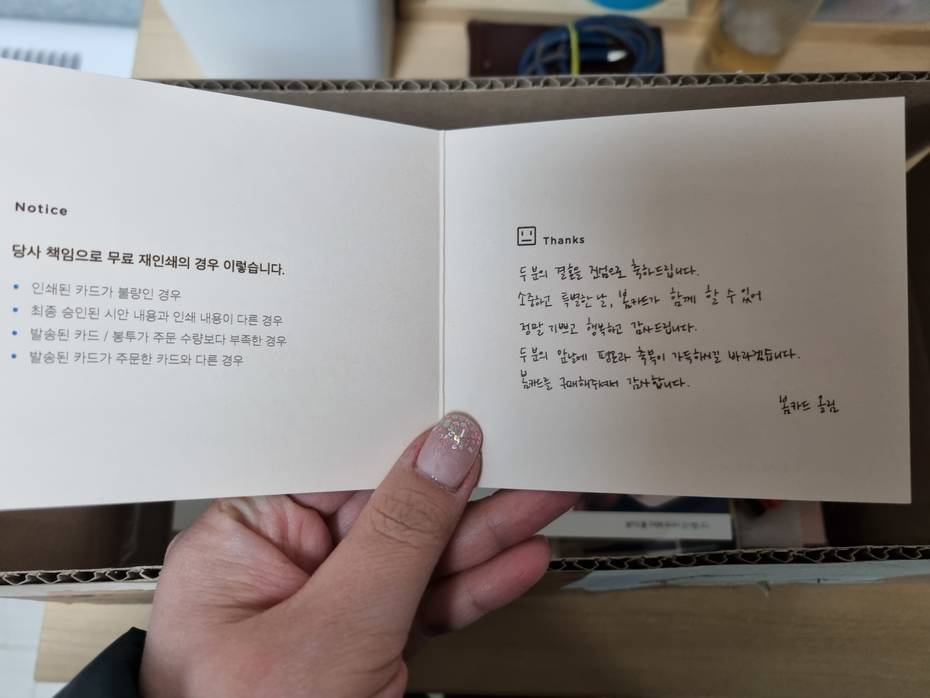 Notice
당사 책임으로 무료 재인쇄의 경우 이렇습니다.
• 인쇄된 카드가 불량인 경우
• 최종 승인된 시안 내용과 인쇄 내용이 다른 경우
• 발송된 카드 / 봉투가 주문 수량보다 부족한 경우
• 발송된 카드가 주문한 카드와 다른 경우
Thanks
두분의 결혼을 진심으로 축하드립니다.
소중하고 특별한 날, 봄카드가 함께 할 수 있어
정말 기쁘고 행복하고 감사드립니다.
두분의 앞날에 평온과 축복이 가득하시길 바라겠습니다.
봄카드를 구매해주셔서 감사합니다.
봄카드 올림